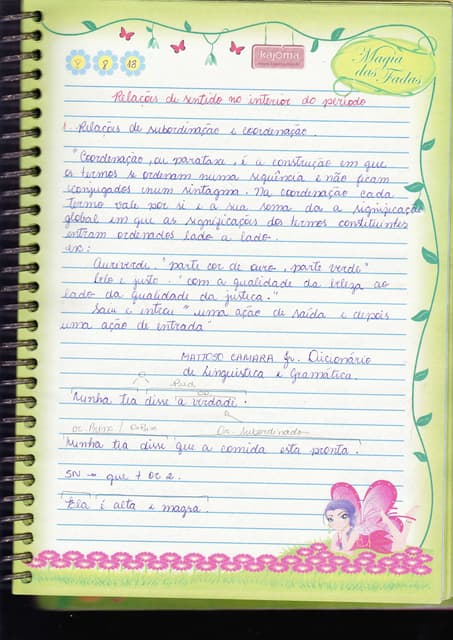 kajoma
Magia
das Fadas
8 8 18
Relações de sentido no interior do período
1. Relações de subordinação e coordenação.
"Coordenação, ou parataxe, é a constução em que
os termos se ordenam numa sequência e não ficam
conjugados num sintagma. Na coordenação cada
termo vale por si e a sua soma da a significação
global em que as significações dos termos constituintes
entram ordenados lado a lado.
ex:
Auriverde: "parte cor de ouro, parte verde"
Belo e justo: "com a qualidade da beleza ao
lado da qualidade da justiça."
Saiu e entrou "uma ação de saída e depois
uma ação de entrada"
MATTOSO CAMARA Jr. Dicionário
de linguística e Gramática.
Pred
Minha tia disse a verdade.
Or. Subordinada
Minha tia disse que a comida esta pronta.
SN → que + or 2.
Ela é alta e magra.